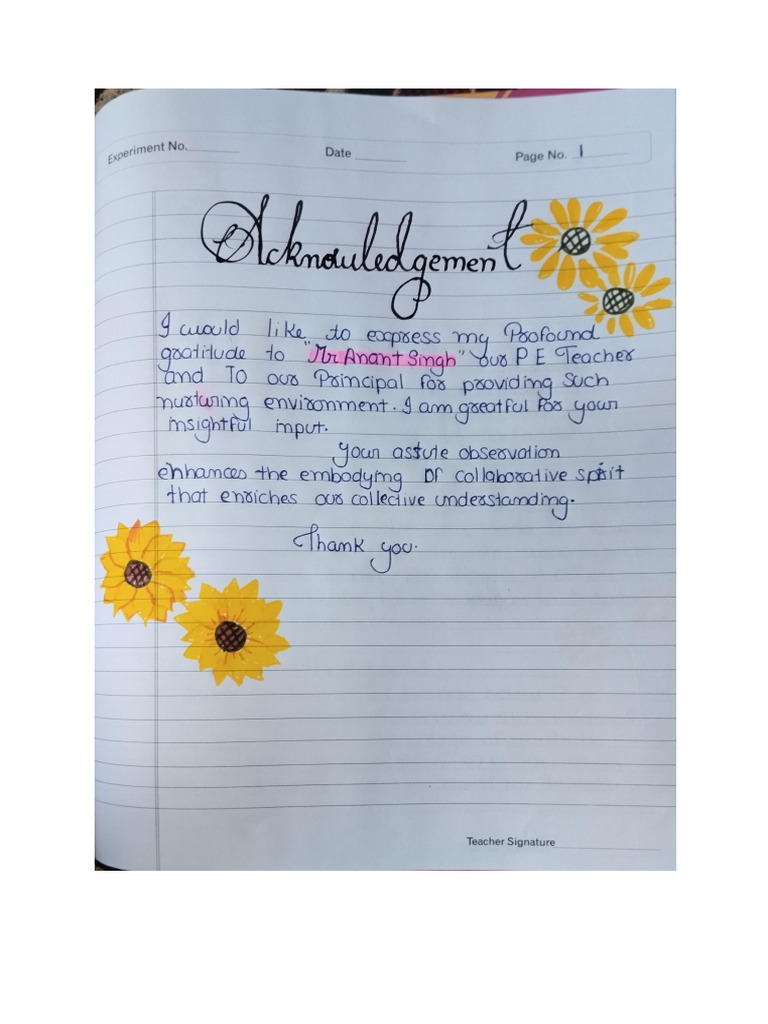 Experiment No. Date Page No. 1
Acknowledgement
I would like to express my Profound
gratitude to "Mr Anant Singh" our P E Teacher
and To our Principal for providing such
nurturing environment. I am greatful for your
insightful input.
Your astute observation
enhances the embodying of collaborative spirit
that enriches our collective understanding.
Thank you.
Teacher Signature